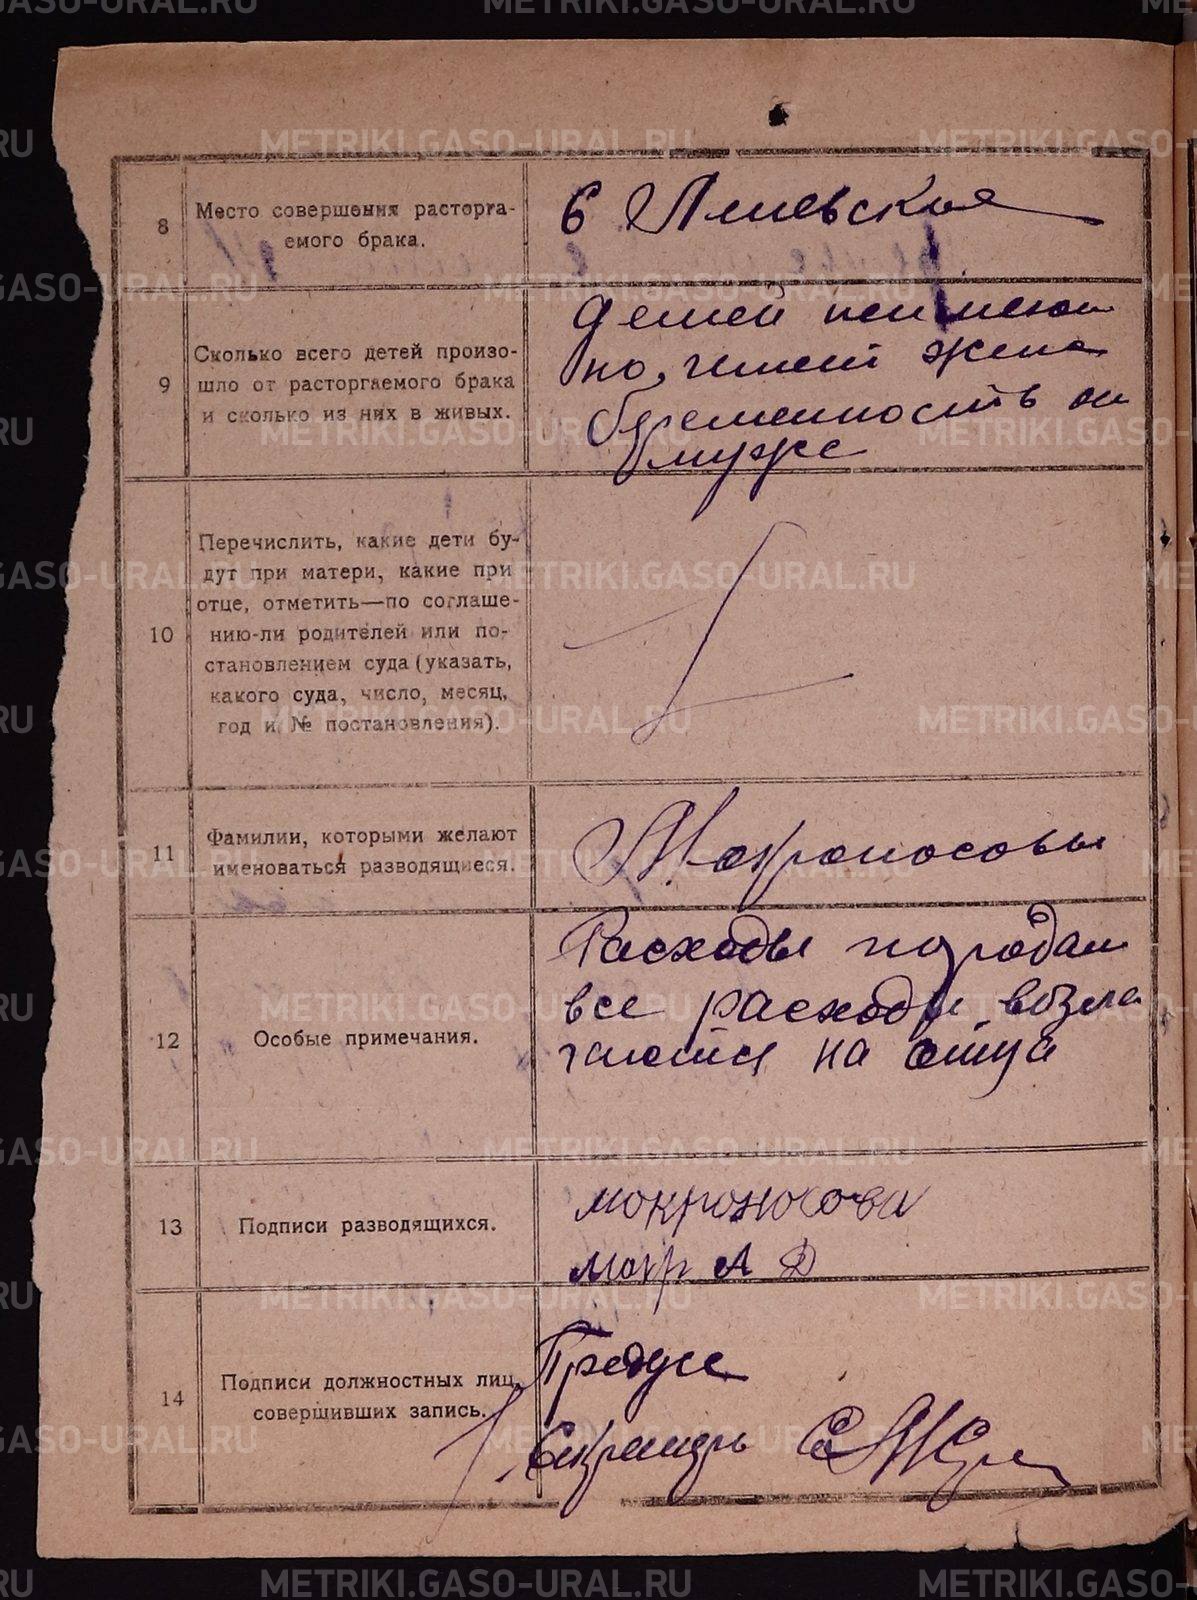 8
Место совершения расторга-
емого брака.
в
9
Сколько всего детей произо-
шло от расторгаемого брака
и сколько из них в живых.
детей неимеют
но, жена
беременность от
муже
10
Перечислить, какие дети бу-
дут при матери, какие при
отце, отметить—по соглаше-
нию-ли родителей или по-
становлением суда (указать,
какого суда, число, месяц,
год и № постановления).
11
Фамилии, которыми желают
именоваться разводящиеся.
Мокроносовы
12
Особые примечания.
Расходы породам
все расходы возла
гаются на отца
13
Подписи разводящихся.
мокроносова
мокр А Д
14
Подписи должностных лиц,
совершивших запись.
Секретарь
METRIKI.GASO-URAL.RU